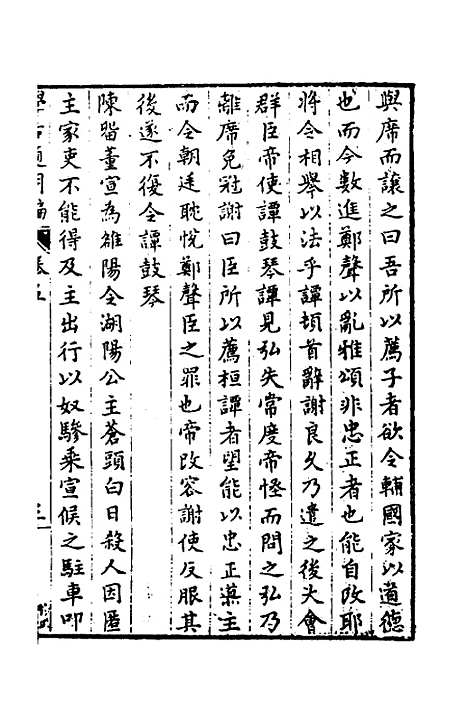 與席而讓之曰吾所以薦子者欲令輔國家以道德
也而今數進鄭聲以亂雅頌非忠正者也能自改耶
將令相舉以法乎譚頓首辭謝良久乃遣之後大會
群臣帝使譚鼓琴譚見弘失常度帝怪而問之弘乃
離席免冠謝曰臣所以薦桓譚者望能以忠正藁主
而令朝廷耽悅鄭聲臣之罪也帝改容謝使反服其
後遂不復令譚鼓琴
陳留董宣為雒陽令湖陽公主蒼頭白日殺人因匿
主家吏不能得及主出行以奴驂乘宣候之駐車叩